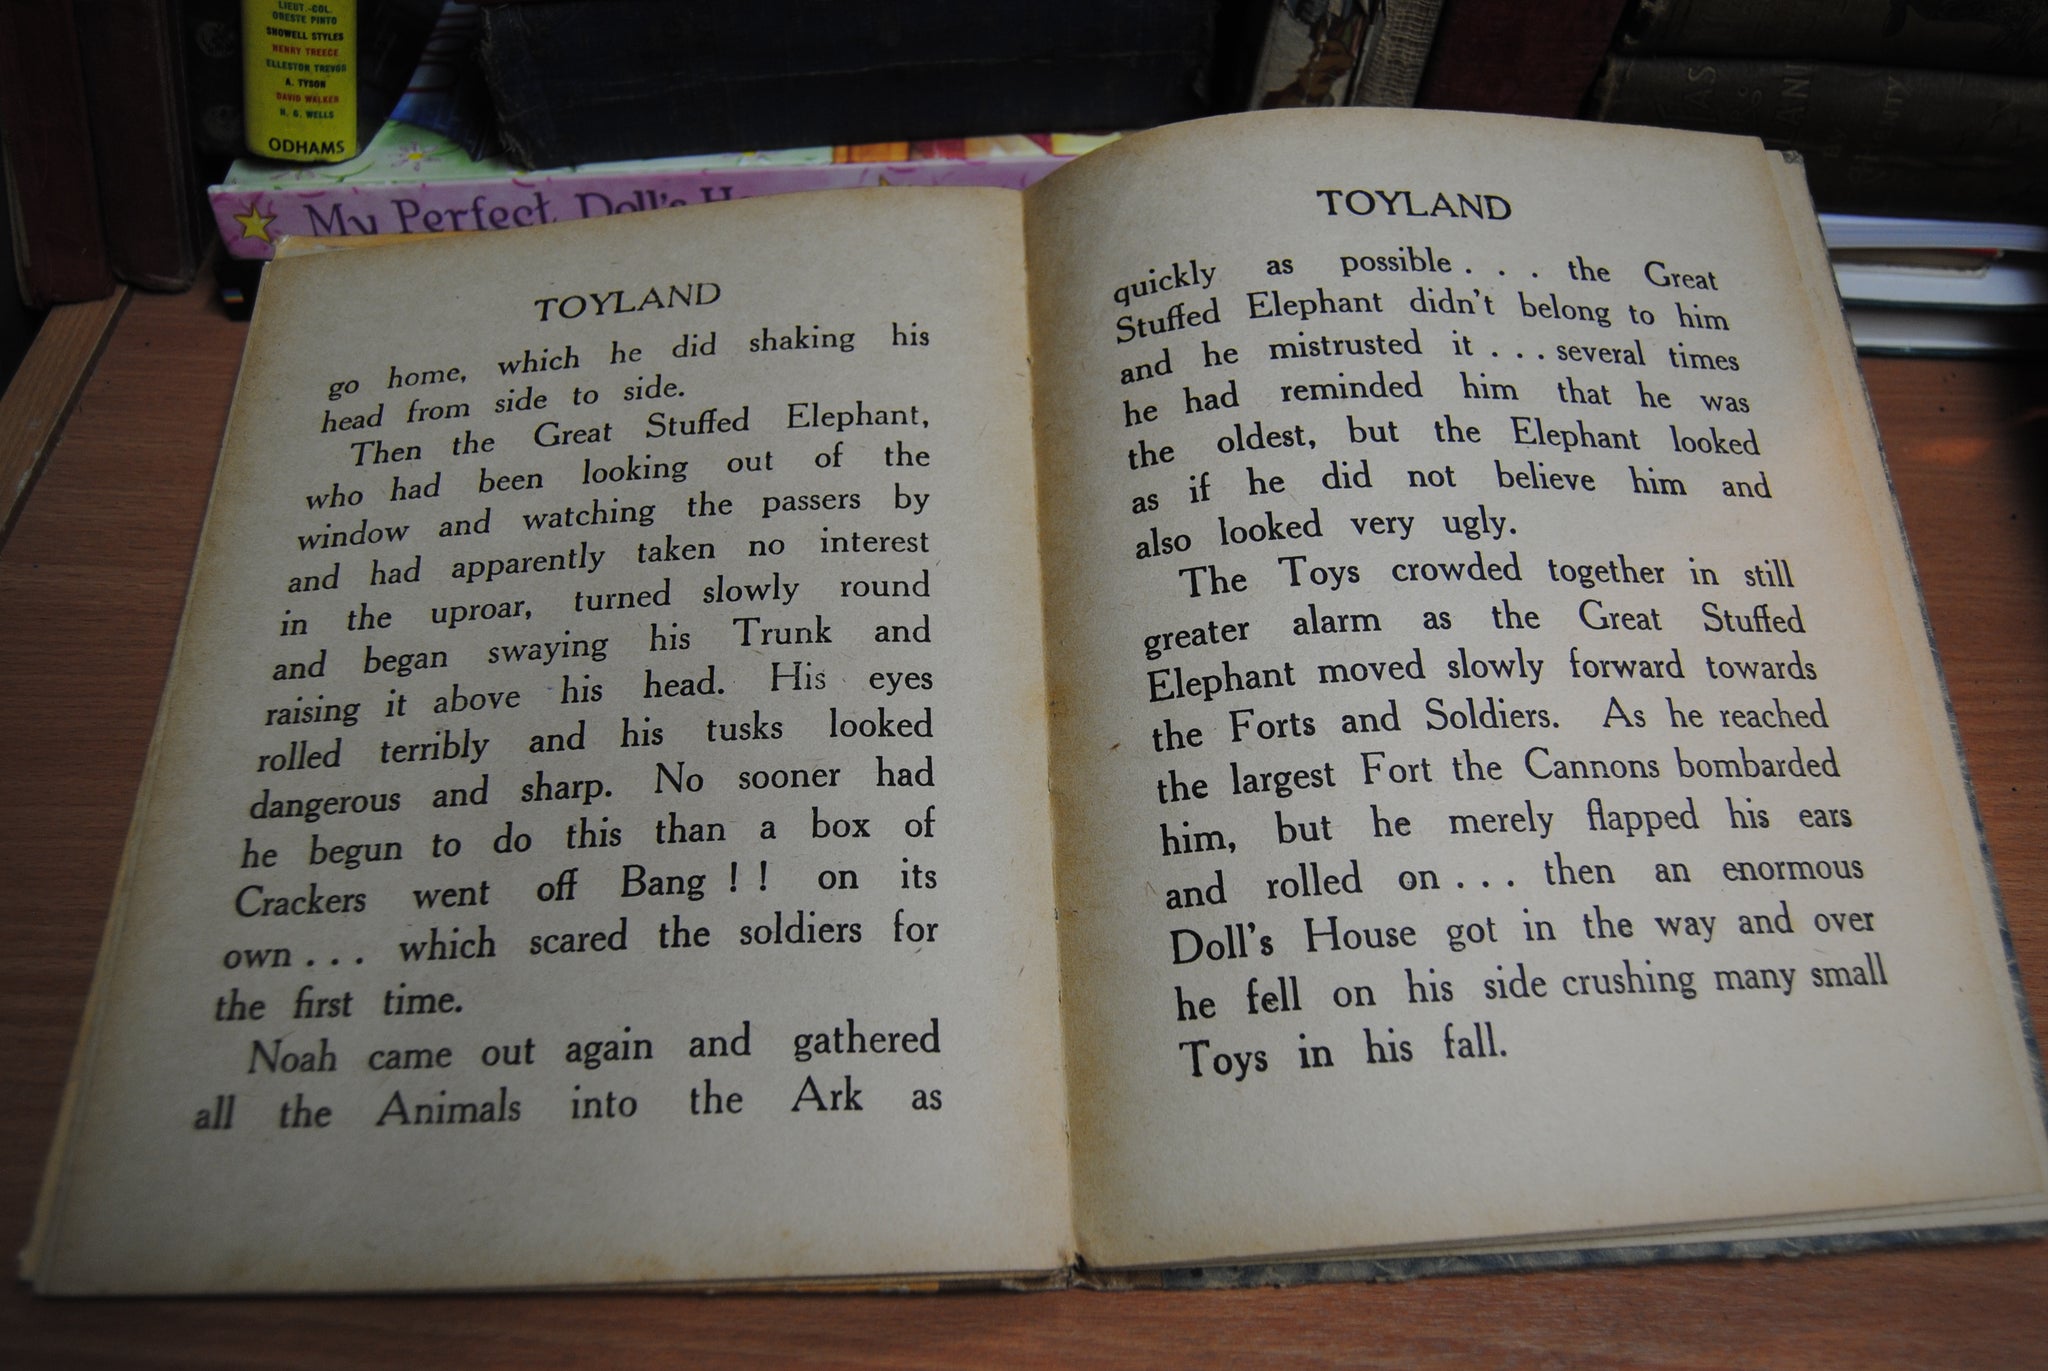 LIEUT.-COL.
ORESTE PINTO
SHOWELL STYLES
HENRY TREECE
ELLESTON TREVOR
A. TYSON
DAVID WALKER
H. G. WELLS
ODHAMS
My Perfect Doll's
TOYLAND
go home, which he did shaking his
head from side to side.
Then the Great Stuffed Elephant,
who had been looking out of the
window and watching the passers by
and had apparently taken no interest
in the uproar, turned slowly round
and began swaying his Trunk and
raising it above his head. His eyes
rolled terribly and his tusks looked
dangerous and sharp. No sooner had
he begun to do this than a box of
Crackers went off Bang ! ! on its
own . . . which scared the soldiers for
the first time.
Noah came out again and gathered
all the Animals into the Ark as
TOYLAND
quickly as possible . . . the Great
Stuffed Elephant didn't belong to him
and he mistrusted it . . . several times
he had reminded him that he was
the oldest, but the Elephant looked
as if he did not believe him and
also looked very ugly.
The Toys crowded together in still
greater alarm as the Great Stuffed
Elephant moved slowly forward towards
the Forts and Soldiers. As he reached
the largest Fort the Cannons bombarded
him, but he merely flapped his ears
and rolled on . . . then an enormous
Doll's House got in the way and over
he fell on his side crushing many small
Toys in his fall.